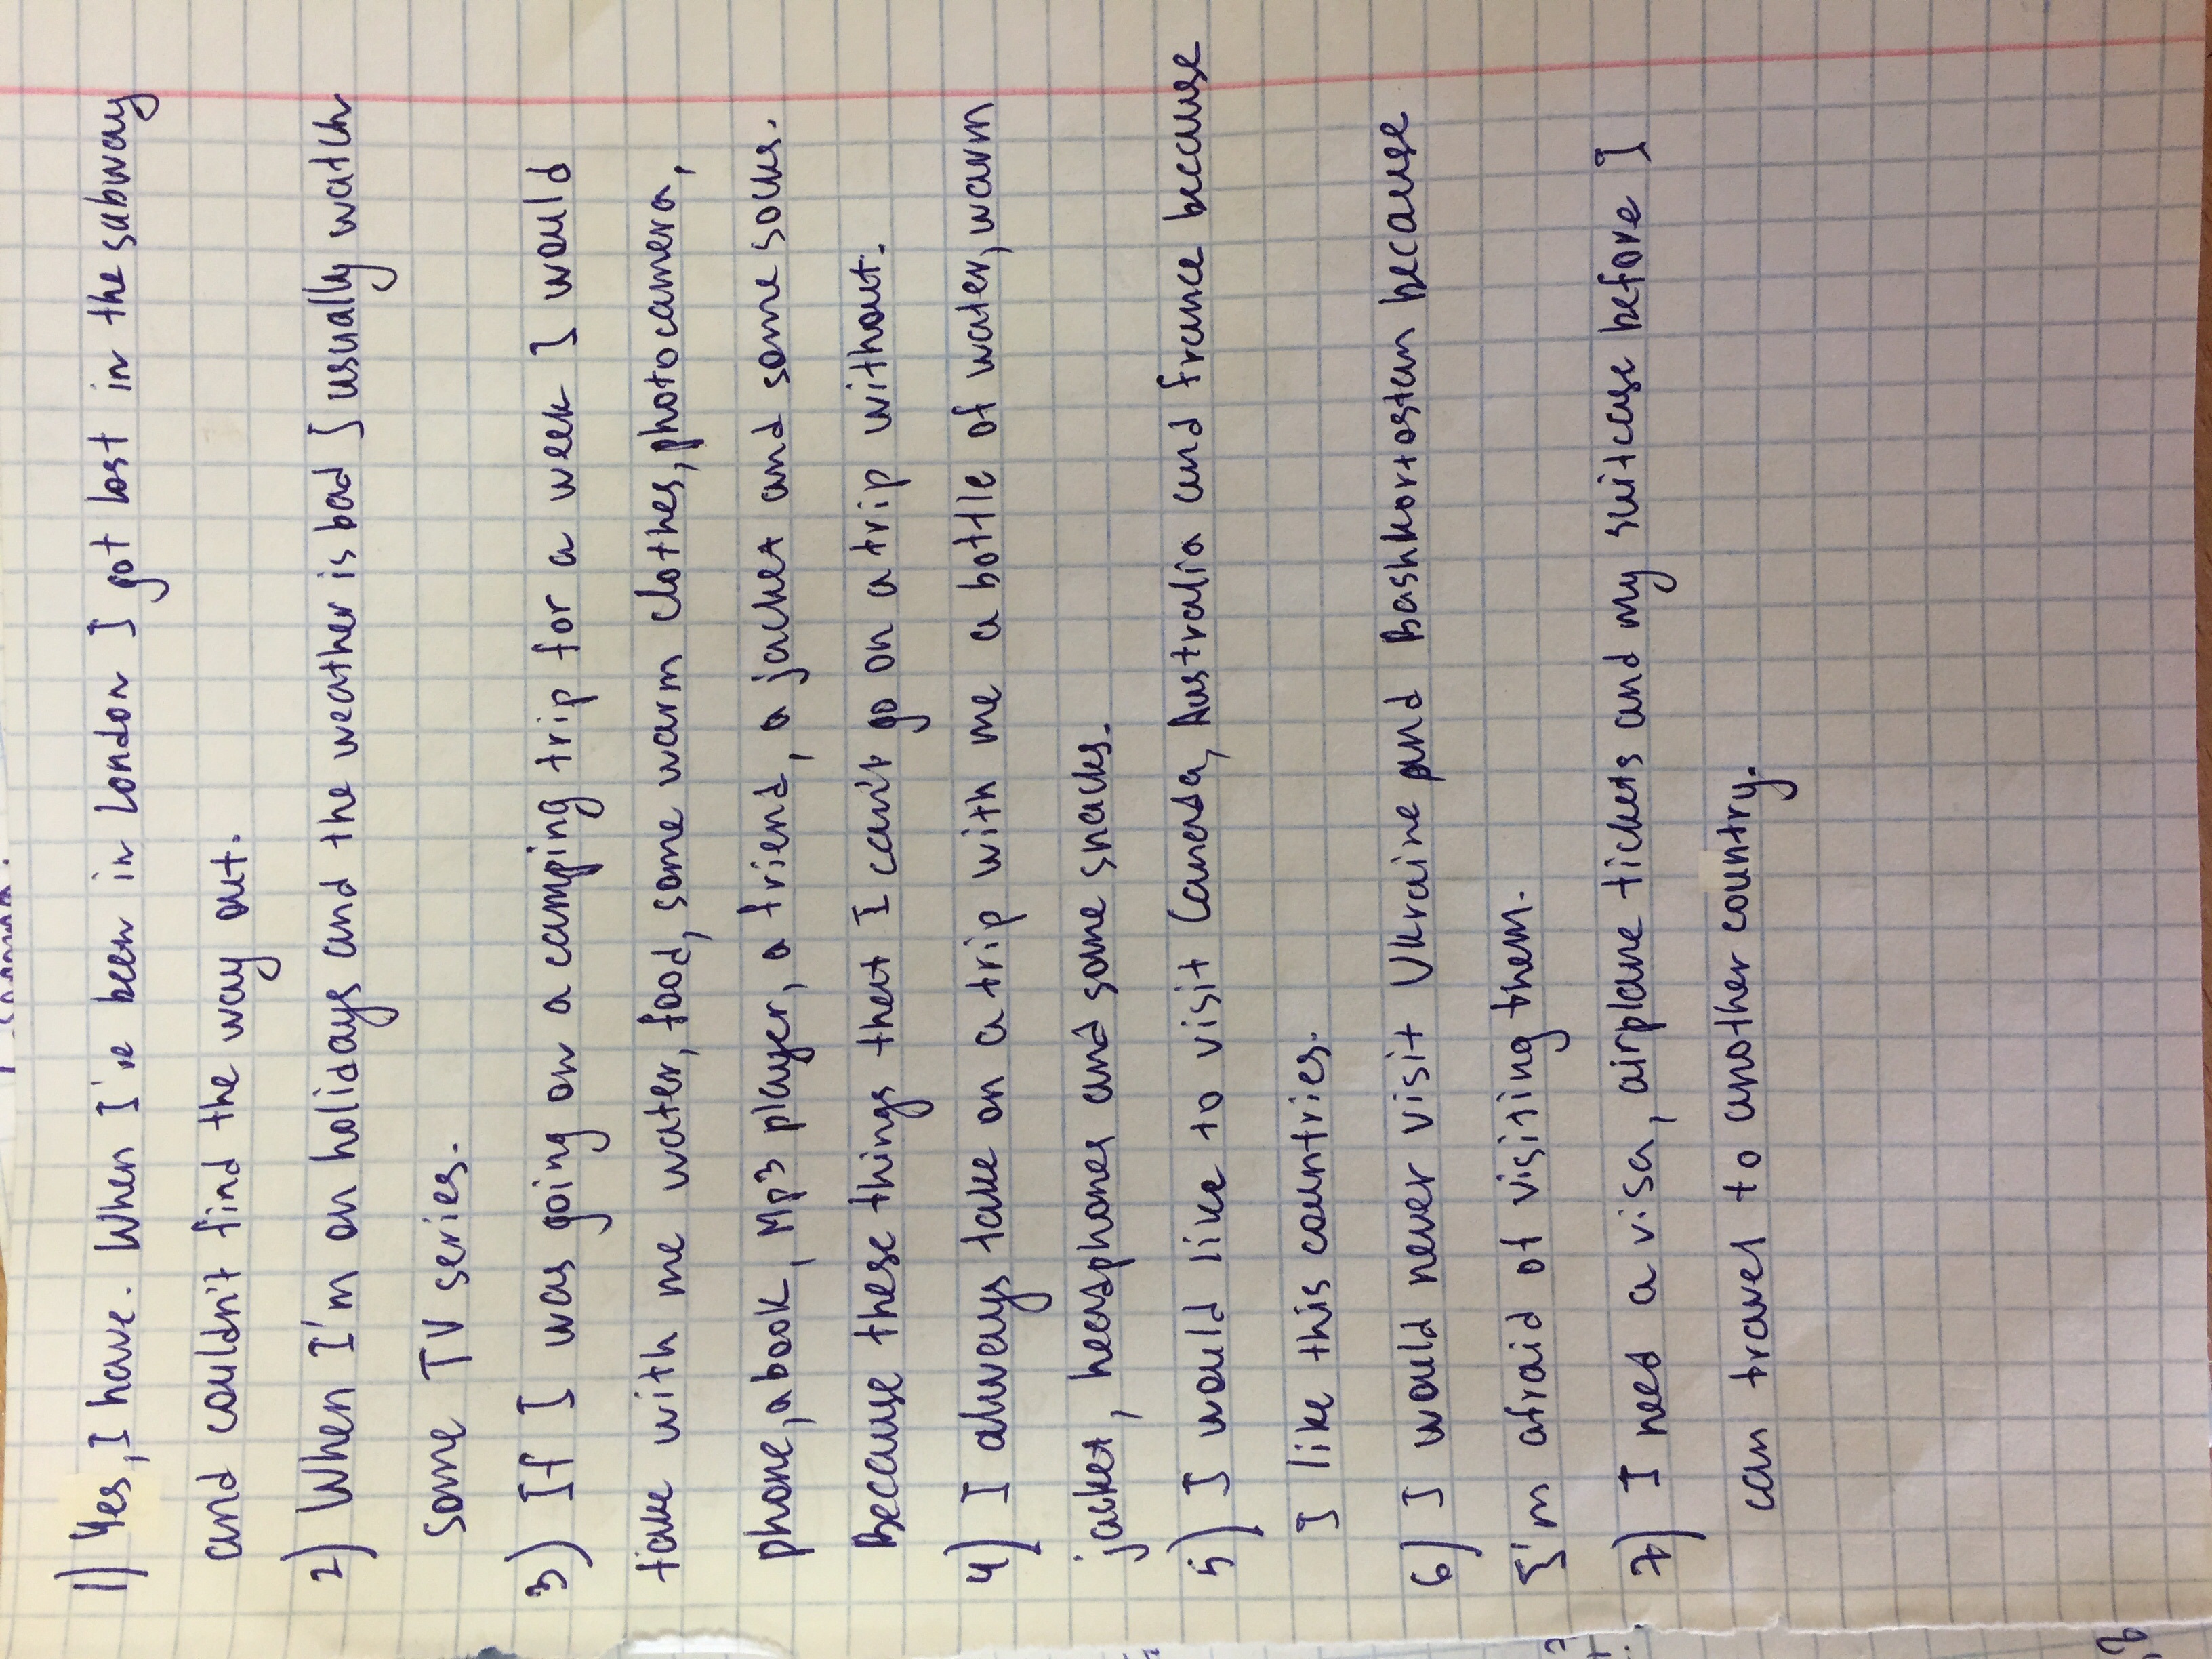 1) Yes, I have. When I've been in London I got lost in the subway
and couldn't find the way out.
2) When I'm on holidays and the weather is bad I usually watch
some TV series.
3) If I was going on a camping trip for a week I would
take with me water, food, some warm clothes, photocamera,
phone, a book, Mp3 player, a friend, a jacket and some socks.
Because these things that I can't go on a trip without.
4) I always take on a trip with me a bottle of water, warm
jacket, headphones and some snacks.
5) I would like to visit Canada, Australia and France because
I like this countries.
6) I would never visit Ukraine and Bashkortostan because
I'm afraid of visiting them.
7) I need a visa, airplane tickets and my suitcase before I
can travel to another country.